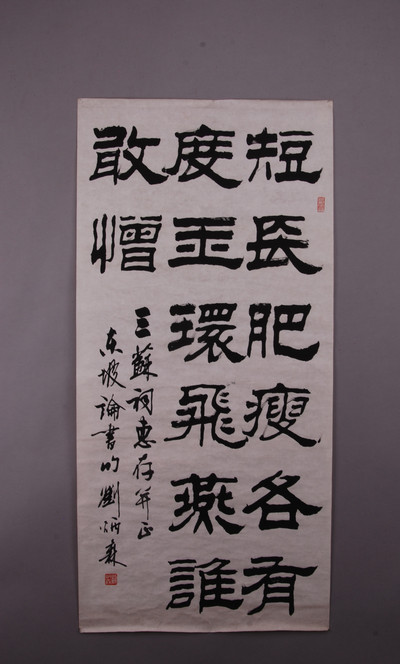 短長肥瘦各有
度玉環飛燕誰
敢憎
三蘇祠惠存并正
東坡論書句劉炳森